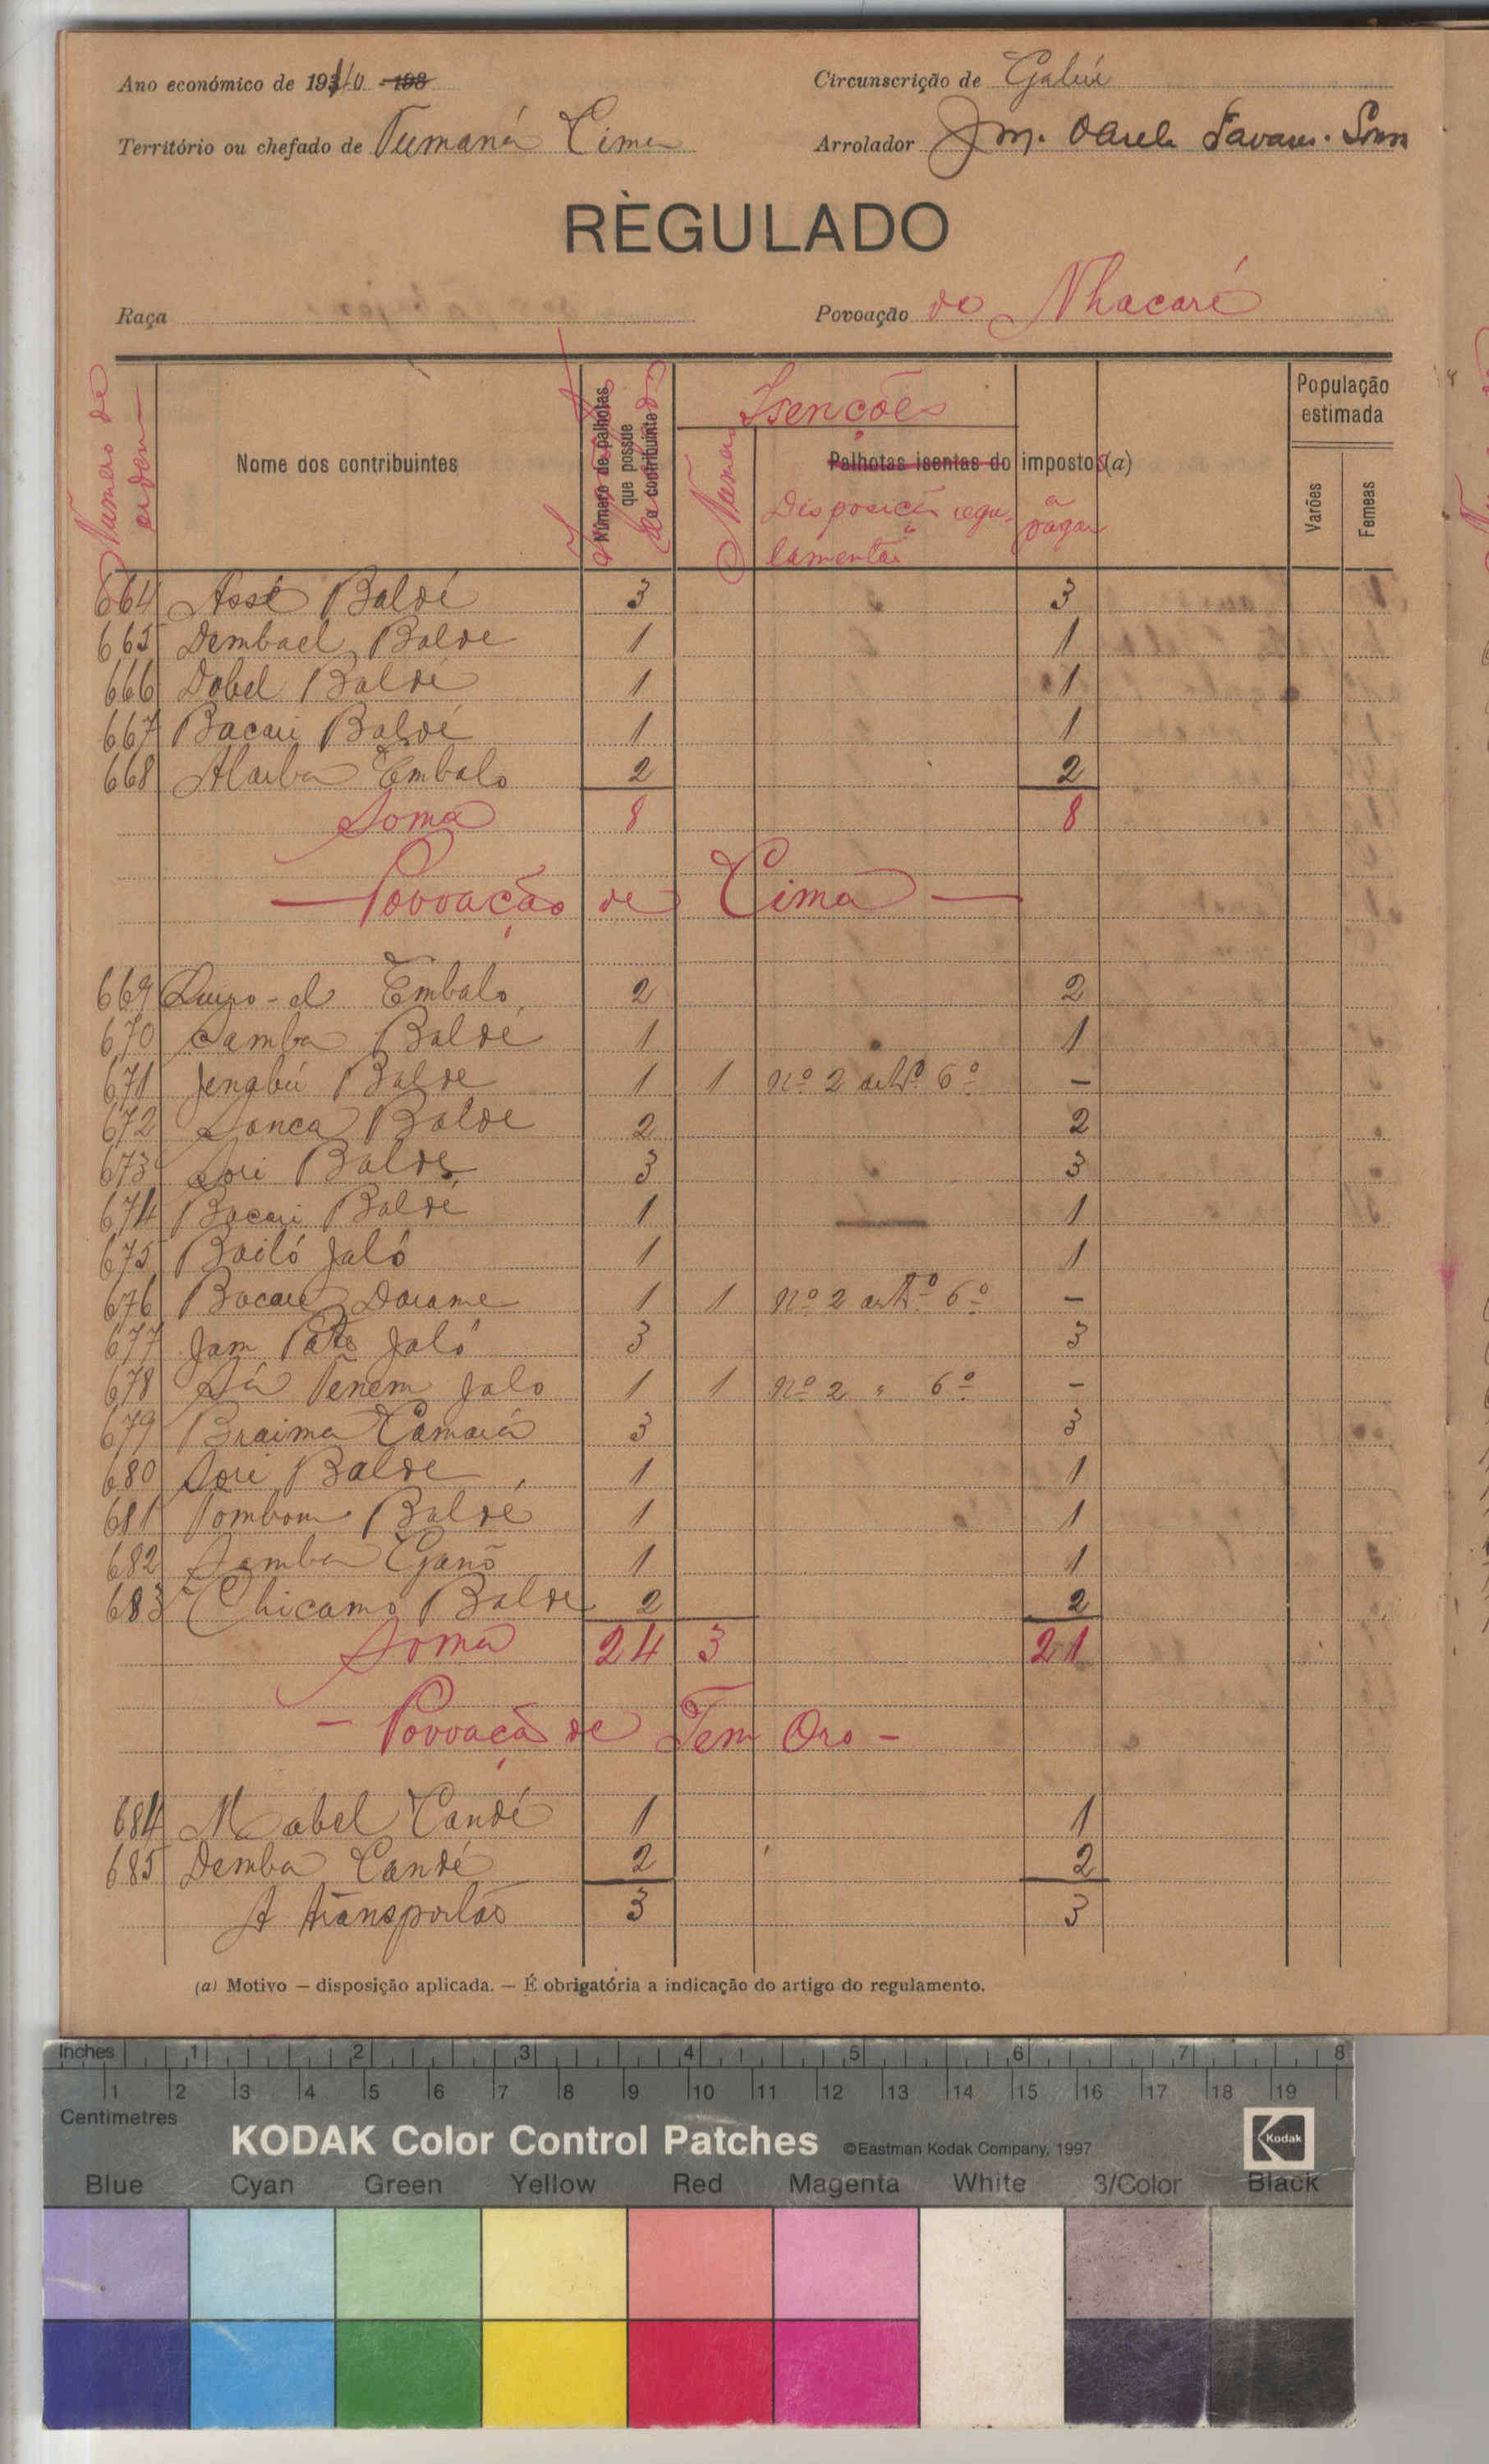 Ano económico de 19
Circunscrição de Gabú
Território ou chefado de Tumaná Cima
Arrolador J M.
RÈGULADO
Raça
Povoação do Nhacaré
Numero de ordem
Nome dos contribuintes
Número de palhotas que possue o contribuinte
Isenções
Numero
Palhotas isentas do imposto (a)
Disposição regu-
lamentar
a pagar
População estimada
Varões
Femeas
664 Assé Baldé 3 3
665 Dembael Balde 1 1
666 Dobel Baldé 1 1
667 Bacari Baldé 1 1
668 Embalo 2 2
Soma 8 8
— Povoação de Cima —
669 Embalo 2 2
670 Samba Baldé 1 1
671 Jengbú Balde 1 1 nº 2 artº 6º –
672 Sanca Balde 2 2
673 Sori Baldé 3 3
674 Bacari Baldé 1 1
675 Bailó Jaló 1 1
676 Bacari Darame 1 1 nº 2 artº 6º –
677 Jam Paté Jaló 3 3
678 Tenem Jalo 1 1 nº 2 " 6º –
679 Braima Camará 3 3
680 Sori Balde 1 1
681 Baldé 1 1
682 Samba Ganó 1 1
683 Chicamo Balde 2 2
Soma 24 3 21
– Povoação de Tem Oro –
684 Mabel Candé 1 1
685 Demba Candé 2 2
A transportar 3 3
(a) Motivo — disposição aplicada. — É obrigatória a indicação do artigo do regulamento.
Inches 1 2 3 4 5 6 7 8
1 2 3 4 5 6 7 8 9 10 11 12 13 14 15 16 17 18 19
Centimetres
KODAK Color Control Patches ©Eastman Kodak Company, 1997 Kodak
Blue Cyan Green Yellow Red Magenta White 3/Color Black